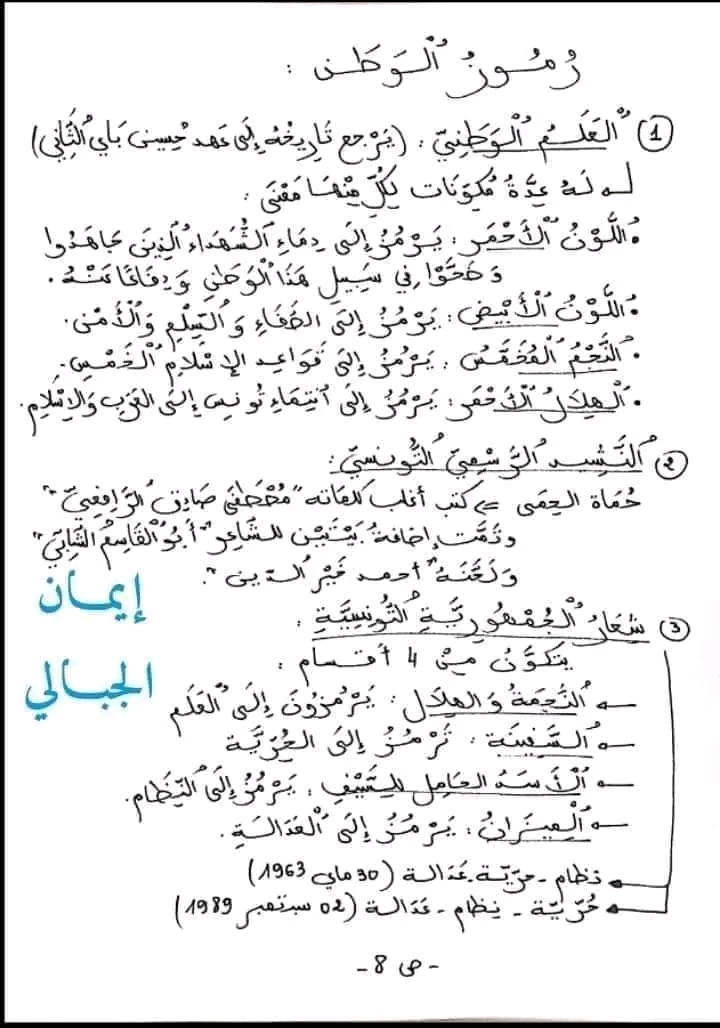 رُمُوزُ ٱلْوَطَنِ :
① ٱلْعَلَمُ ٱلْوَطَنِيّ : (يَرْجع تَارِيخُهُ إِلَى عَهد حُسين بَاي ٱلثَّانِي)
لَهُ عِدَّةُ مُكَوِّنَات لِكُلٍّ مِنْهَا مَعْنَى :
• اللَّوْنُ ٱلْأَحْمَر : يَرْمُزُ إِلَى دِمَاءِ ٱلشُّهَدَاء ٱلَّذِينَ جَاهَدُوا
وَضَحَّوْا فِي سَبِيلِ هَذَا ٱلْوَطَنِ وَدِفَاعًا عَنْهُ.
• اللَّوْنُ ٱلْأَبْيَض : يَرْمُزُ إِلَى الصَّفَاءِ وَ ٱلسِّلْمِ وَٱلْأَمْن.
• ٱلنَّجْمُ ٱلْمُخَمَّسُ : يَرْمُزُ إِلَى قَوَاعِد الإِسْلَامِ ٱلْخَمْسِ.
• ٱلْهِلَالُ ٱلْأَحْمَر : يَرْمُزُ إِلَى ٱنْتِمَاءِ تُونِس إِلَى العَرَبِ وَالإِسْلَامِ.
② ٱلنَّشِيد ٱلرَّسْمِيّ ٱلتُّونِسِيّ :
حُمَاة الحِمَى => كتب أغلب كلماته "مُصْطَفَى صَادِق ٱلرَّافِعِيّ"
وتَمَّت إضَافَةُ بَيْتَيْن للشَّاعِر "أَبُو ٱلْقَاسِم الشَّابِّيّ"
وَلَحَّنَهُ "أحمد خَيْر ٱلدِّين".
إيمان
الجبالي
③ شِعَارُ ٱلْجُمْهُورِيَّةِ ٱلتُّونِسِيَّةِ :
يَتَكَوَّنُ مِنْ 4 أقسَام :
ٱلنَّجْمَةُ وَالهِلَال : يَرْمُزونَ إِلَى ٱلْعَلَم
ٱلسَّفِينَة : تَرْمُزُ إِلَى الحُرِّيَّة
ٱلْأَسَدُ الحَامِل لِلسَّيْفِ : يَرْمُزُ إِلَى ٱلنِّظَام.
ٱلْمِيزَانُ : يَرْمُزُ إِلَى ٱلْعَدَالَةِ.
نظام - حرّيّة - عَدَالة (30 ماي 1963)
حُرِّيّة - نِظَام - عَدَالة (02 سبتمبر 1989)
- ص 8 -